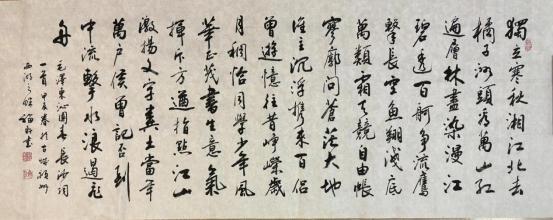 獨立寒秋湘江北去
橘子洲頭看萬山紅
遍層林盡染漫江
碧透百舸争流鷹
擊長空魚翔淺底
萬類霜天競自由悵
寥廓問蒼茫大地
誰主沉浮携來百侣
曾遊憶往昔崢嶸歲
月稠恰同學少年風
華正茂書生意氣
揮斥方遒指點江山
激揚文字糞土當年
萬户侯曾記否到
中流擊水浪遏飛
舟
毛澤東沁園春長沙詞
一首
西湖之畔